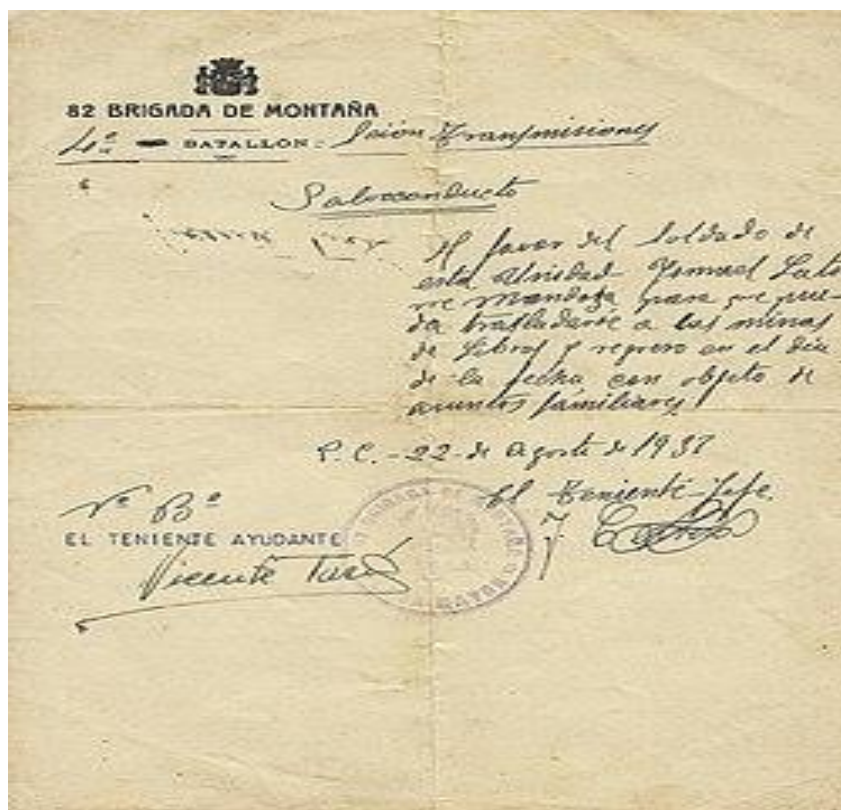 82 BRIGADA DE MONTAÑA
4º BATALLON: Scion Transmisiones
Salvoconducto
A favor del Soldado de
esta Unidad
Mendoza para que pue-
da trasladarse a las minas
de Libros y regreso en el dia
de la fecha con objeto de
asuntos familiares
P.C. - 22 de Agosto de 1937
El Teniente Jefe.
Vº Bº
EL TENIENTE AYUDANTE
Vicente
BRIGADA DE MONTAÑA
MAYOR